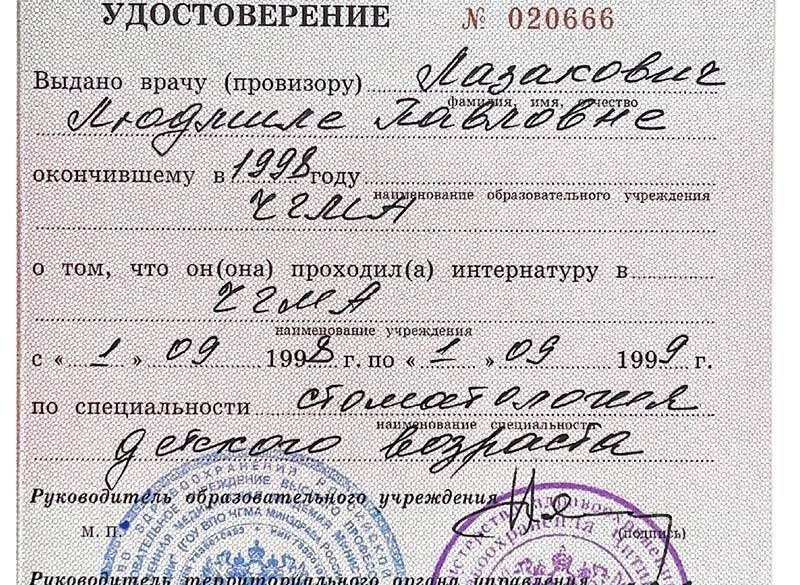 УДОСТОВЕРЕНИЕ № 020666
Выдано врачу (провизору) Лазакович
фамилия, имя, отчество
Людмиле Павловне
окончившему в 1998 году
наименование образовательного учреждения
ЧГМА
о том, что он(она) проходил(а) интернатуру в
ЧГМА
наименование учреждения
с « 1 » 09 1998 г. по « 1 » 09 1999 г.
по специальности стоматология
наименование специальности
детского возраста
Руководитель образовательного учреждения
М. П. (подпись)
Руководитель территориального органа управления